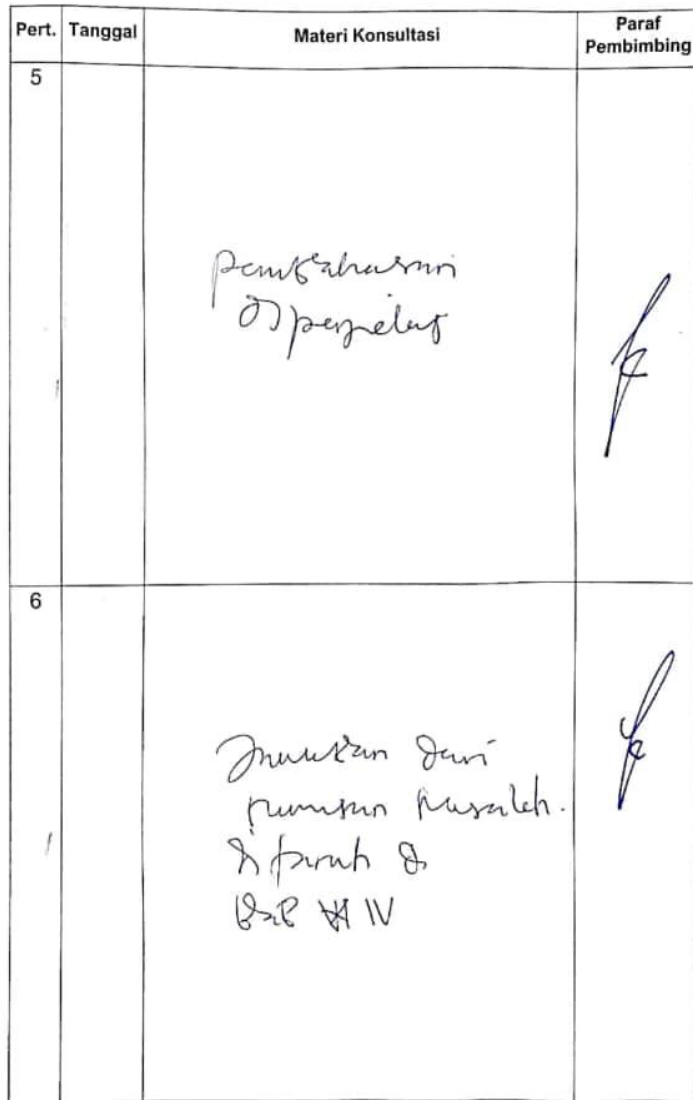 Pert. Tanggal Materi Konsultasi Paraf Pembimbing
5
Pembahasan
di perjelas
6
dari
rumusan masalah.
di taruh di
Bab IV